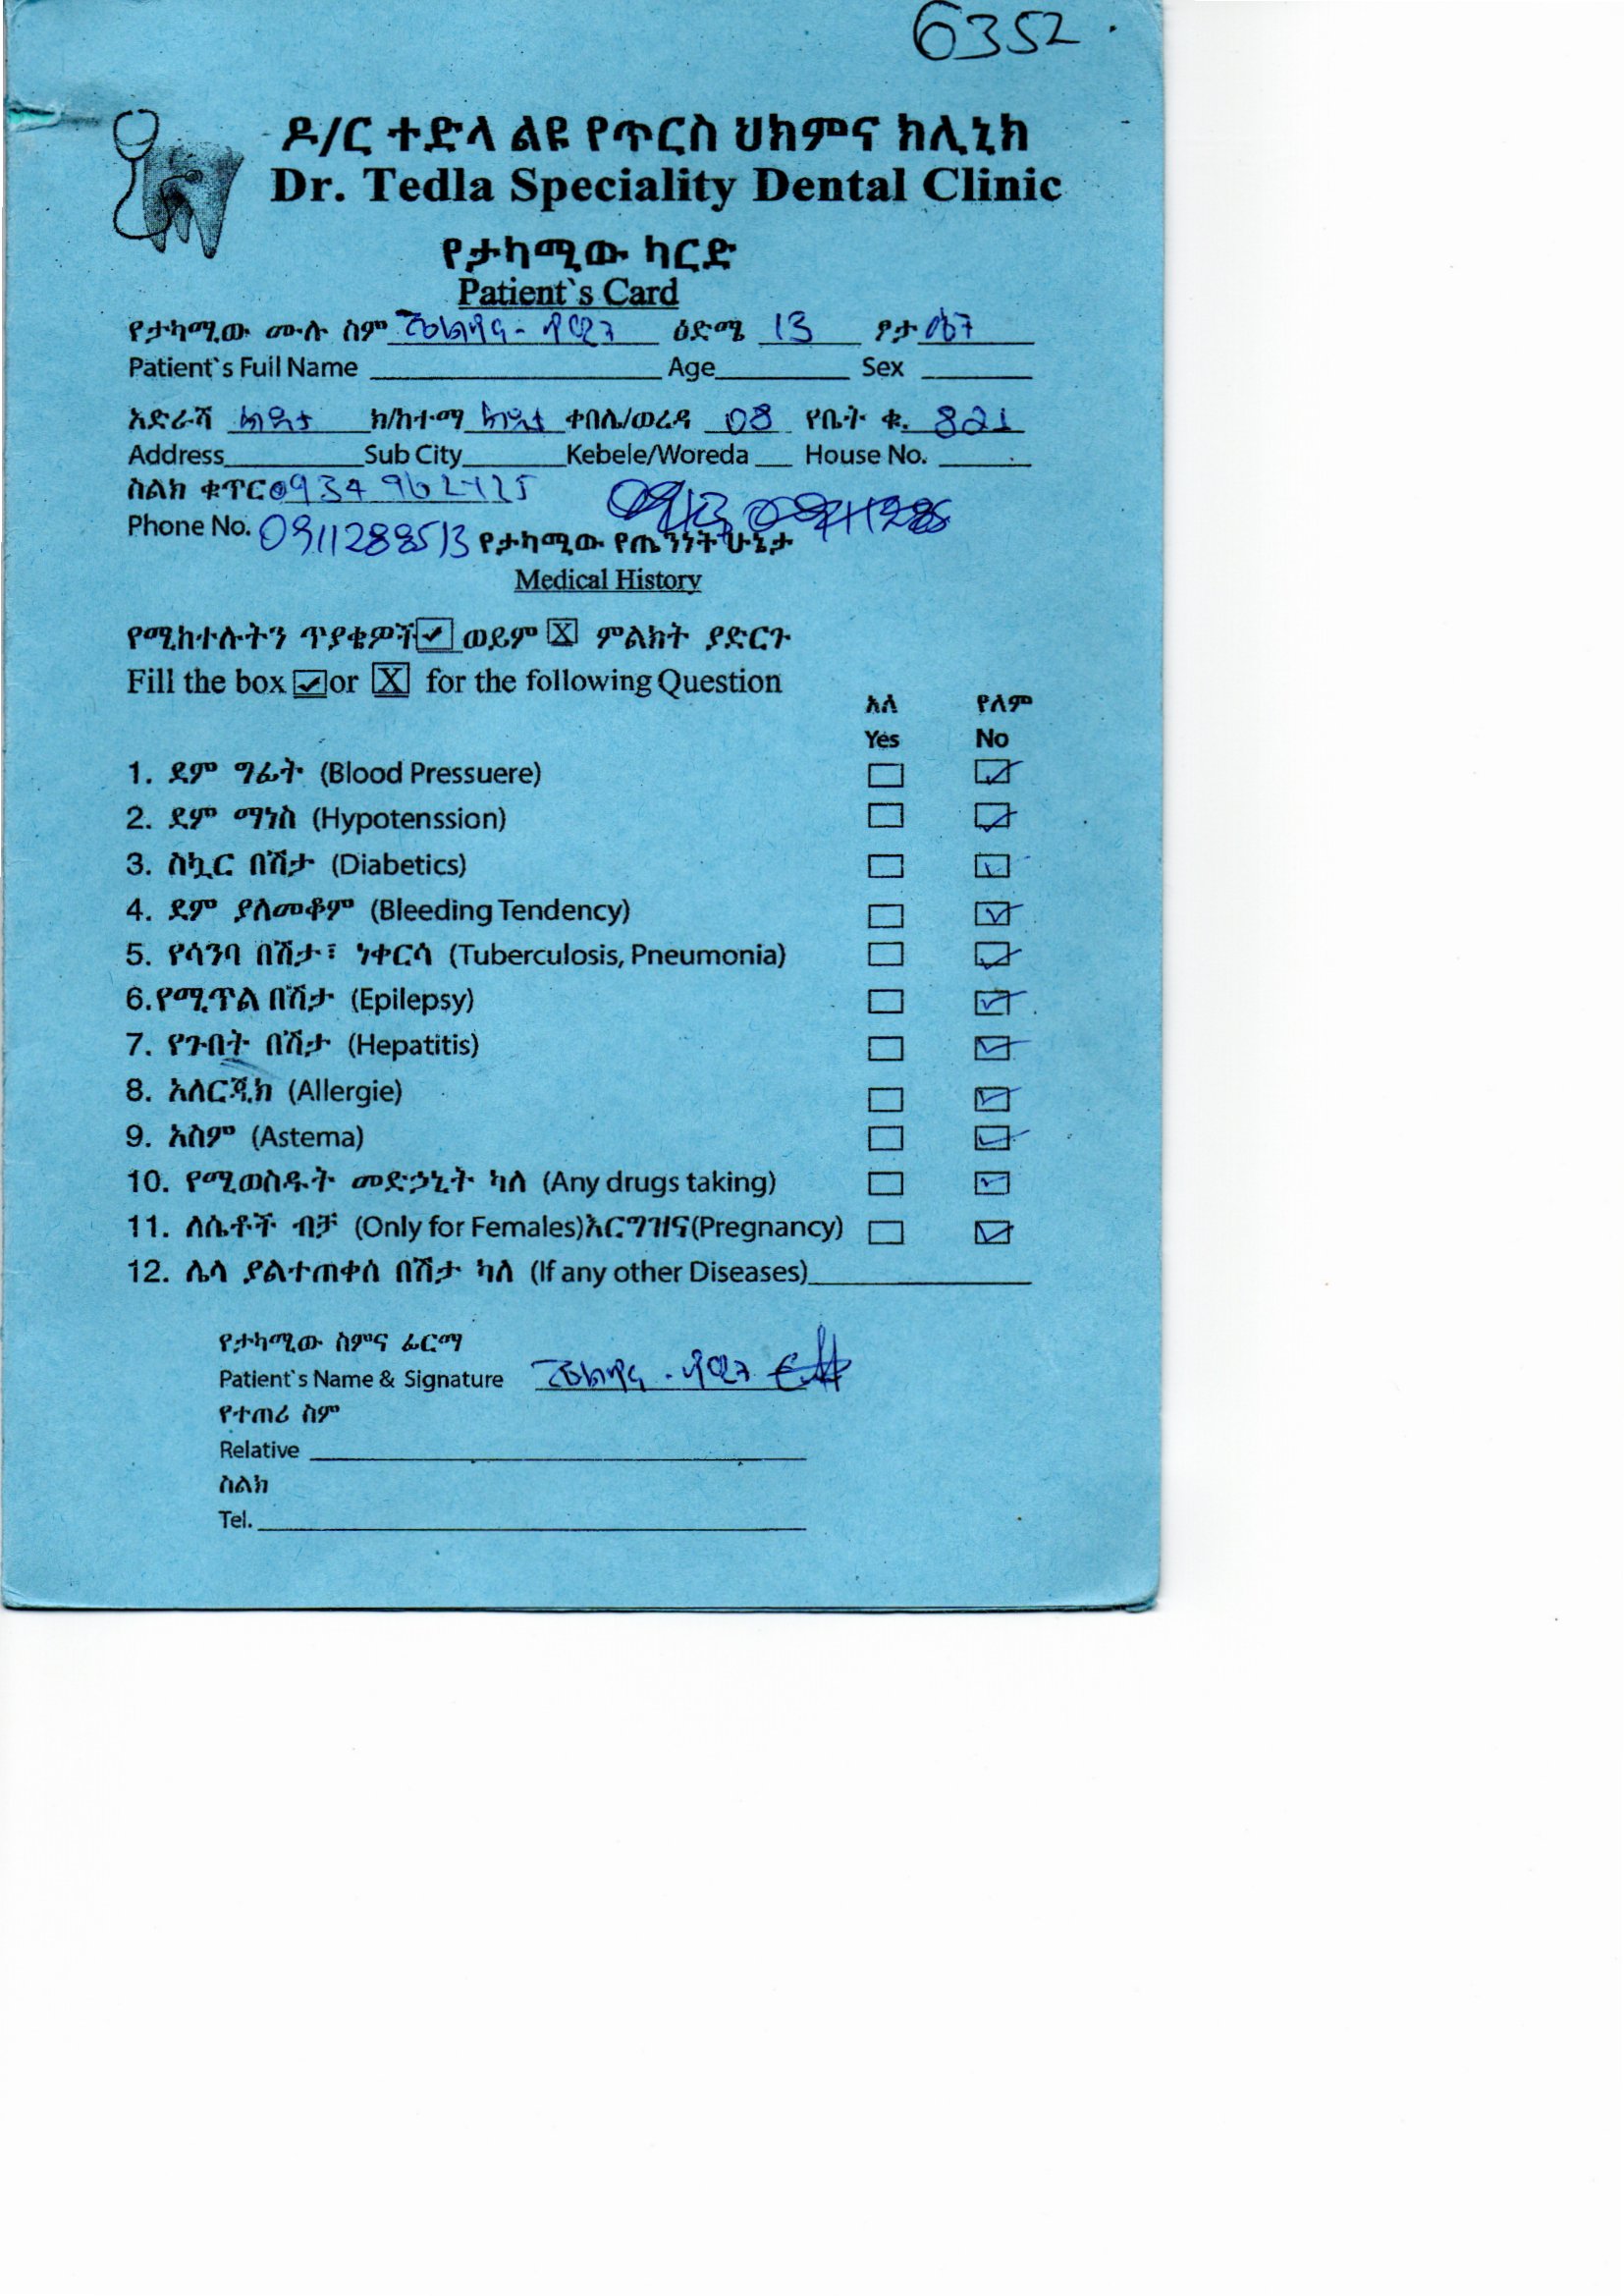 6352
ዶ/ር ተድላ ልዩ የጥርስ ህክምና ክሊኒክ
Dr. Tedla Speciality Dental Clinic
የታካሚው ካርድ
Patient`s Card
የታካሚው ሙሉ ስም ዕድሜ 13 ፆታ
Patient`s Full Name Age Sex
አድራሻ ክ/ከተማ ቀበሌ/ወረዳ 08 የቤት ቁ. 821
Address Sub City Kebele/Woreda House No.
ስልክ ቁጥር
Phone No. 0911288513 የታካሚው የጤንነት ሁኔታ
Medical History
የሚከተሉትን ጥያቄዎች ✓ ወይም X ምልክት ያድርጉ
Fill the box ✓ or X for the following Question
አለ የለም
Yes No
1. ደም ግፊት (Blood Pressuere) ☐ ☑
2. ደም ማነስ (Hypotenssion) ☐ ☑
3. ስኳር በሽታ (Diabetics) ☐ ☑
4. ደም ያለመቆም (Bleeding Tendency) ☐ ☑
5. የሳንባ በሽታ፣ ነቀርሳ (Tuberculosis, Pneumonia) ☐ ☑
6.የሚጥል በሽታ (Epilepsy) ☐ ☑
7. የጉበት በሽታ (Hepatitis) ☐ ☑
8. አለርጂክ (Allergie) ☐ ☑
9. አስም (Astema) ☐ ☑
10. የሚወስዱት መድኃኒት ካለ (Any drugs taking) ☐ ☑
11. ለሴቶች ብቻ (Only for Females)እርግዝና(Pregnancy) ☐ ☑
12. ሌላ ያልተጠቀሰ በሽታ ካለ (If any other Diseases)
የታካሚው ስምና ፊርማ
Patient`s Name & Signature
የተጠሪ ስም
Relative
ስልክ
Tel.